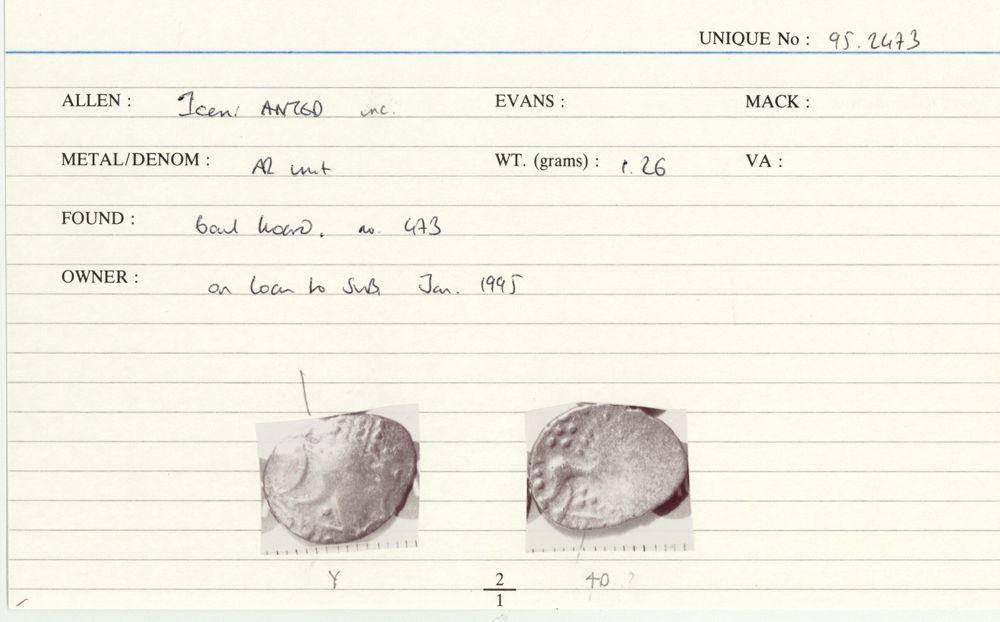 UNIQUE No : 95.2473
ALLEN : Iceni ANTED inc. EVANS : MACK :
METAL/DENOM : AR unit WT. (grams) : 1.26 VA :
FOUND : hoard, no. 473
OWNER : on loan to Jan. 1995
Y 2 40 ?
1